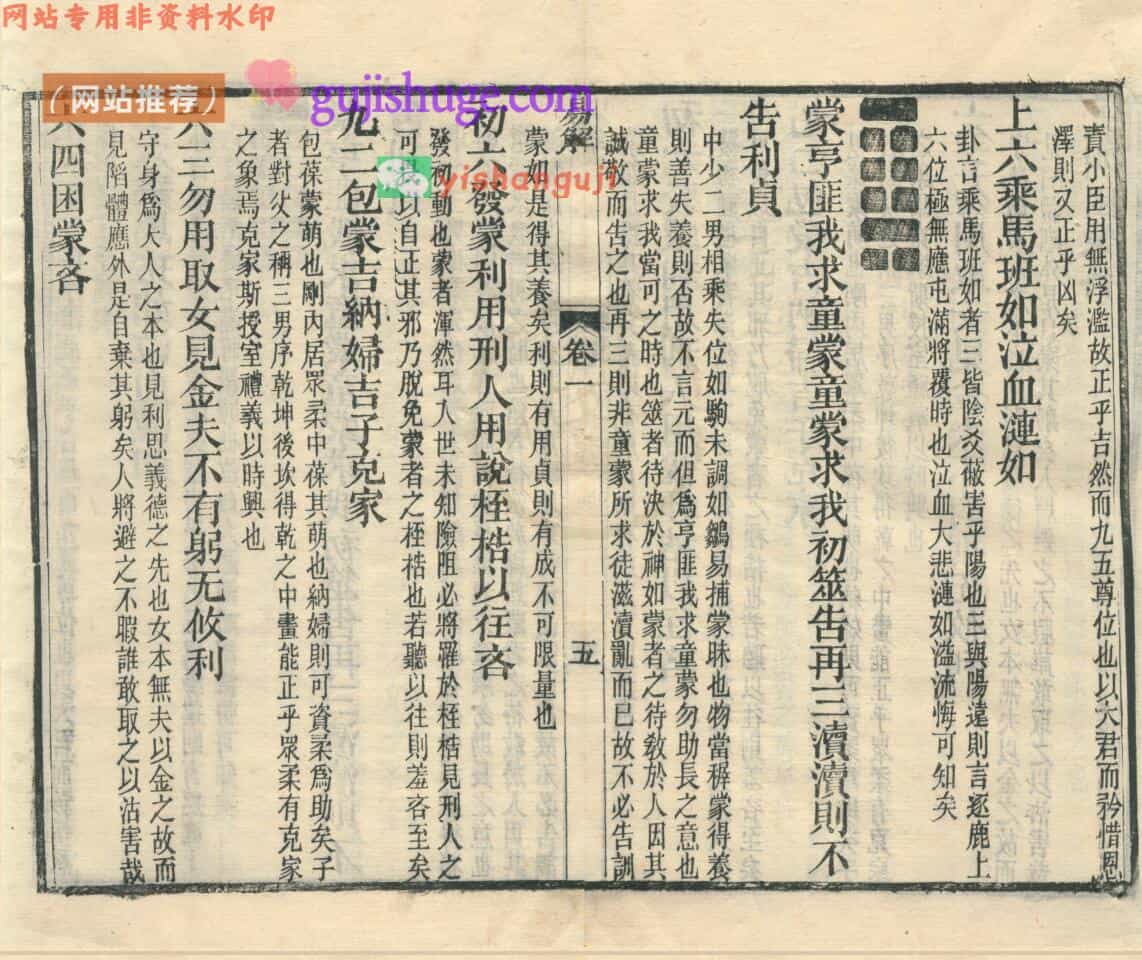 网站专用非资料水印
(网站推荐)
gujishuge.com
yishanguji
責小臣用無浮濫故正乎吉然而九五尊位也以大君而矜惜恩
澤則又正乎凶矣
上六乘馬班如泣血漣如
卦言乘馬班如者三皆陰爻蔽害乎陽也三與陽遠則言逐鹿上
六位極無應屯滿將覆時也泣血大悲漣如溢流悔可知矣
蒙亨匪我求童蒙童蒙求我初筮告再三瀆瀆則不
告利貞
中少二男相乘失位如駒未調如鶵易捕蒙昧也物當穉蒙得養
則善失養則否故不言元而但爲亨匪我求童蒙勿助長之意也
童蒙求我當可之時也筮者待決於神如蒙者之待敎於人因其
誠敬而告之也再三則非童蒙所求徒滋瀆亂而已故不必告訓
易解
卷一
五
蒙如是得其養矣利則有用貞則有成不可限量也
初六發蒙利用刑人用說桎梏以往吝
發初動也蒙者渾然耳入世未知險阻必將罹於桎梏見刑人之
可以自正其邪乃脫免蒙者之桎梏也若聽以往則羞吝至矣
九二包蒙吉納婦吉子克家
包葆蒙萌也剛內居眾柔中葆其萌也納婦則可資柔爲助矣子
者對父之稱三男序乾坤後坎得乾之中畫能正乎眾柔有克家
之象焉克家斯授室禮義以時興也
六三勿用取女見金夫不有躬无攸利
守身爲大人之本也見利思義德之先也女本無夫以金之故而
見陷體應外是自棄其躬矣人將避之不暇誰敢取之以沽害哉
六四困蒙吝